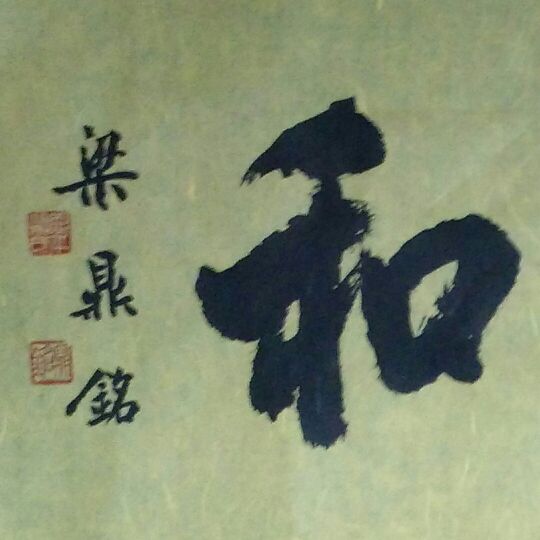 和
梁鼎銘